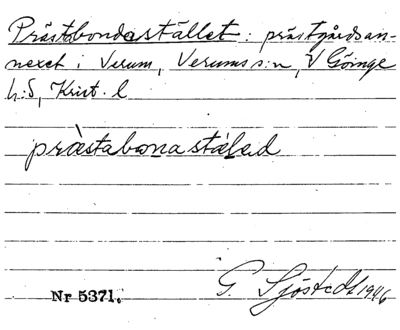 Prästbondestället: prästgårdsan-
nexet i Verum, Verums s:n, V Göinge
h:d, Krist. l
præstabonastaled
Nr 5371.
G. Sjöstedt 1946